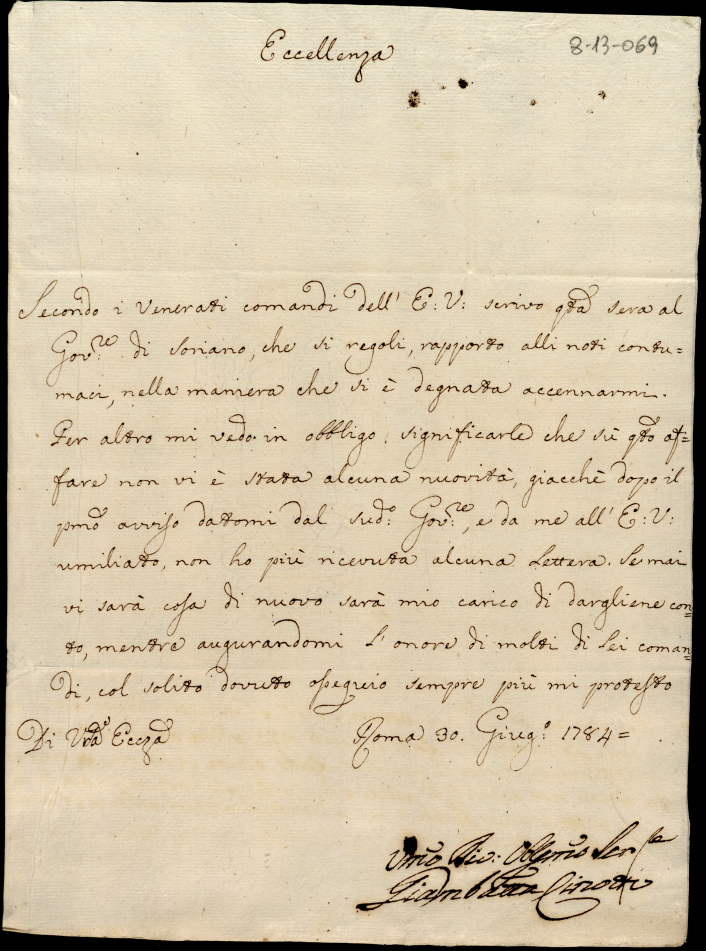 Eccellenza
8-13-069
Secondo i Venerati comandi dell' E: V: scrivo qta sera al
Gov:re di Soriano, che si regoli, rapporto alli noti contu=
maci, nella maniera che si è degnata accennarmi.
Per altro mi vedo in obbligo, significarle che sù qto af=
fare non vi è stata alcuna nuovità, giacchè dopo il
pmo avviso datomi dal sud:o Gov:re, e da me all' E: V:
umiliato, non ho più ricevuta alcuna Lettera. Se mai
vi sarà cosa di nuovo sarà mio carico di dargliene con=
to, mentre augurandomi l'onore di molti di Lei coman=
di, col solito dovuto ossequio sempre più mi protesto
Di Vra Eccza
Roma 30. Giug:o 1784=
Umo Div: Obbmo Serre
Giambatta